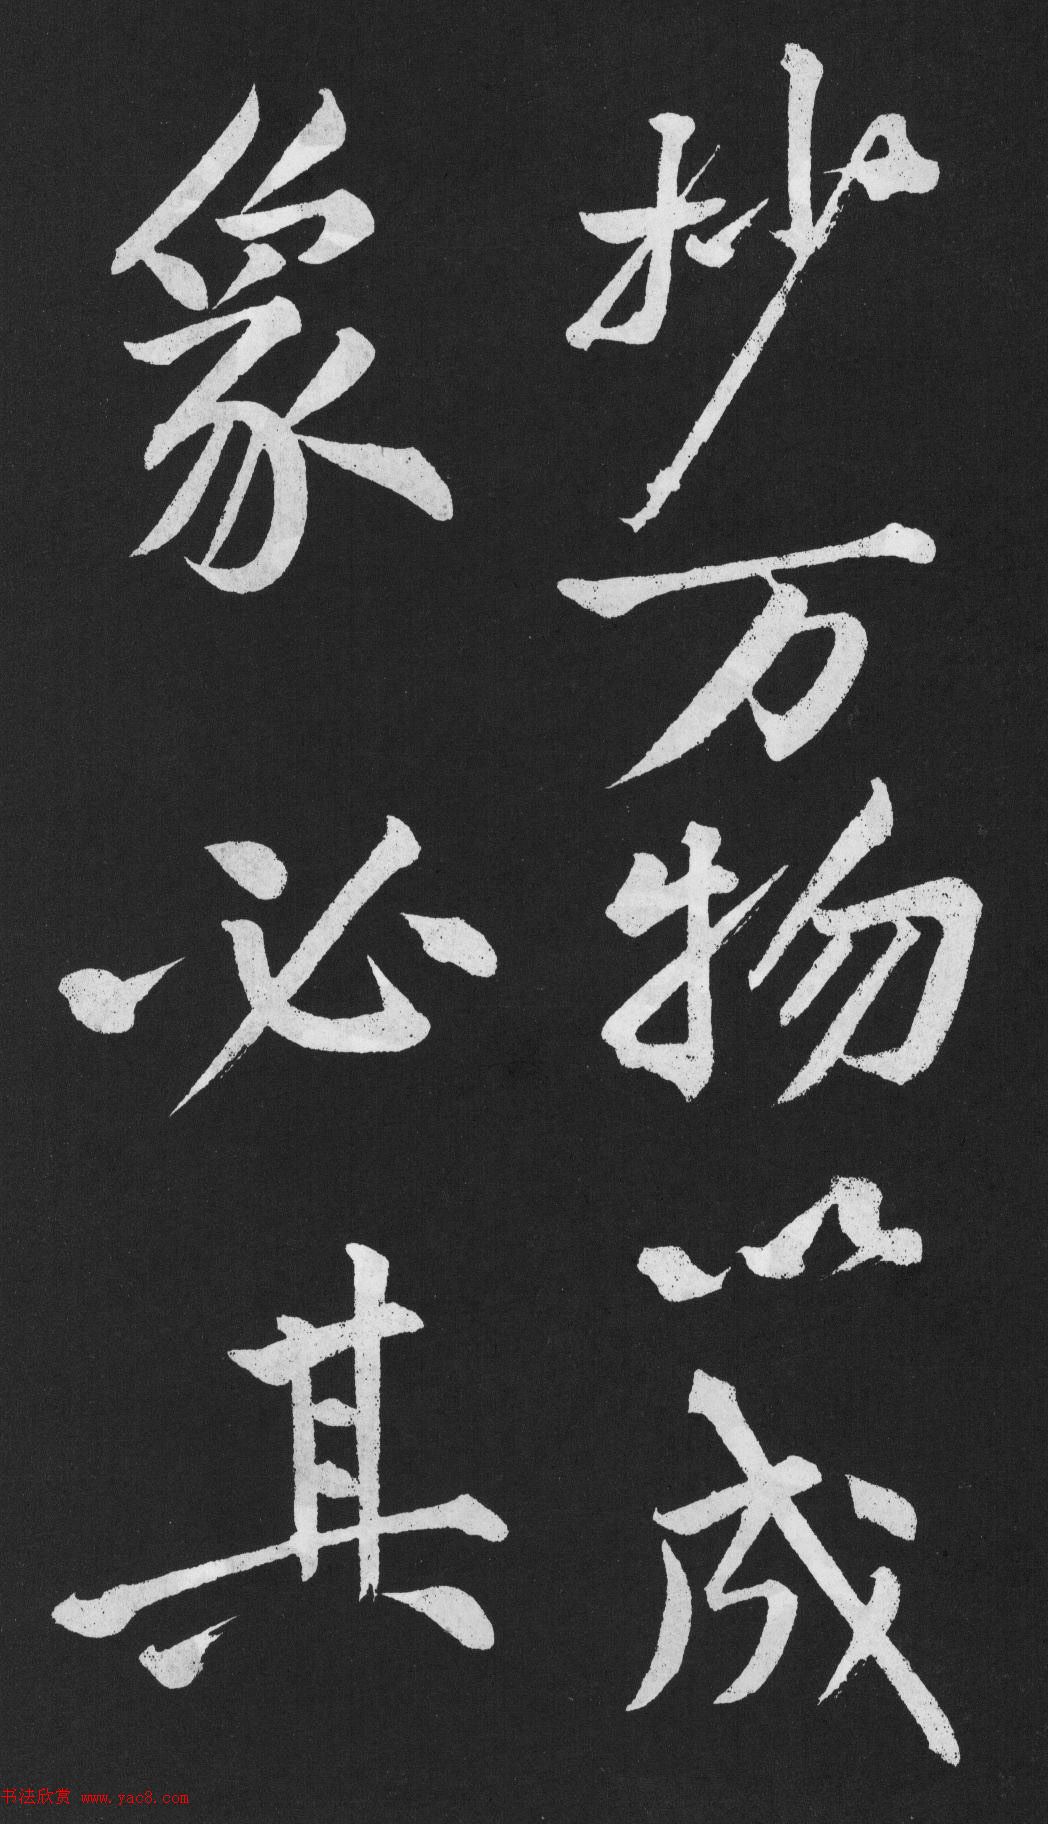 抄万物以成
象必其
书法欣赏 www.yac8.com